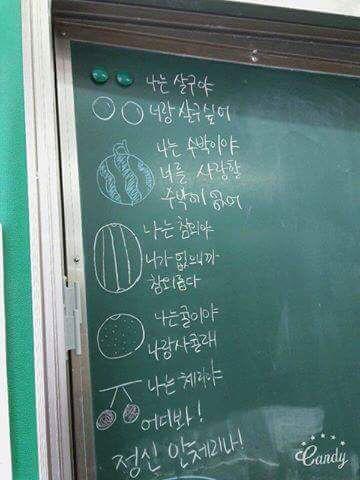 나는 살구야
너랑 살구싶어
나는 수박이야
너를 사랑할
수박에 없어
나는 참외야
니가 없으니까
참외롭다
나는귤이야
나랑사귤래
나는 체리야
어디봐!
정신 안체리나!
Candy